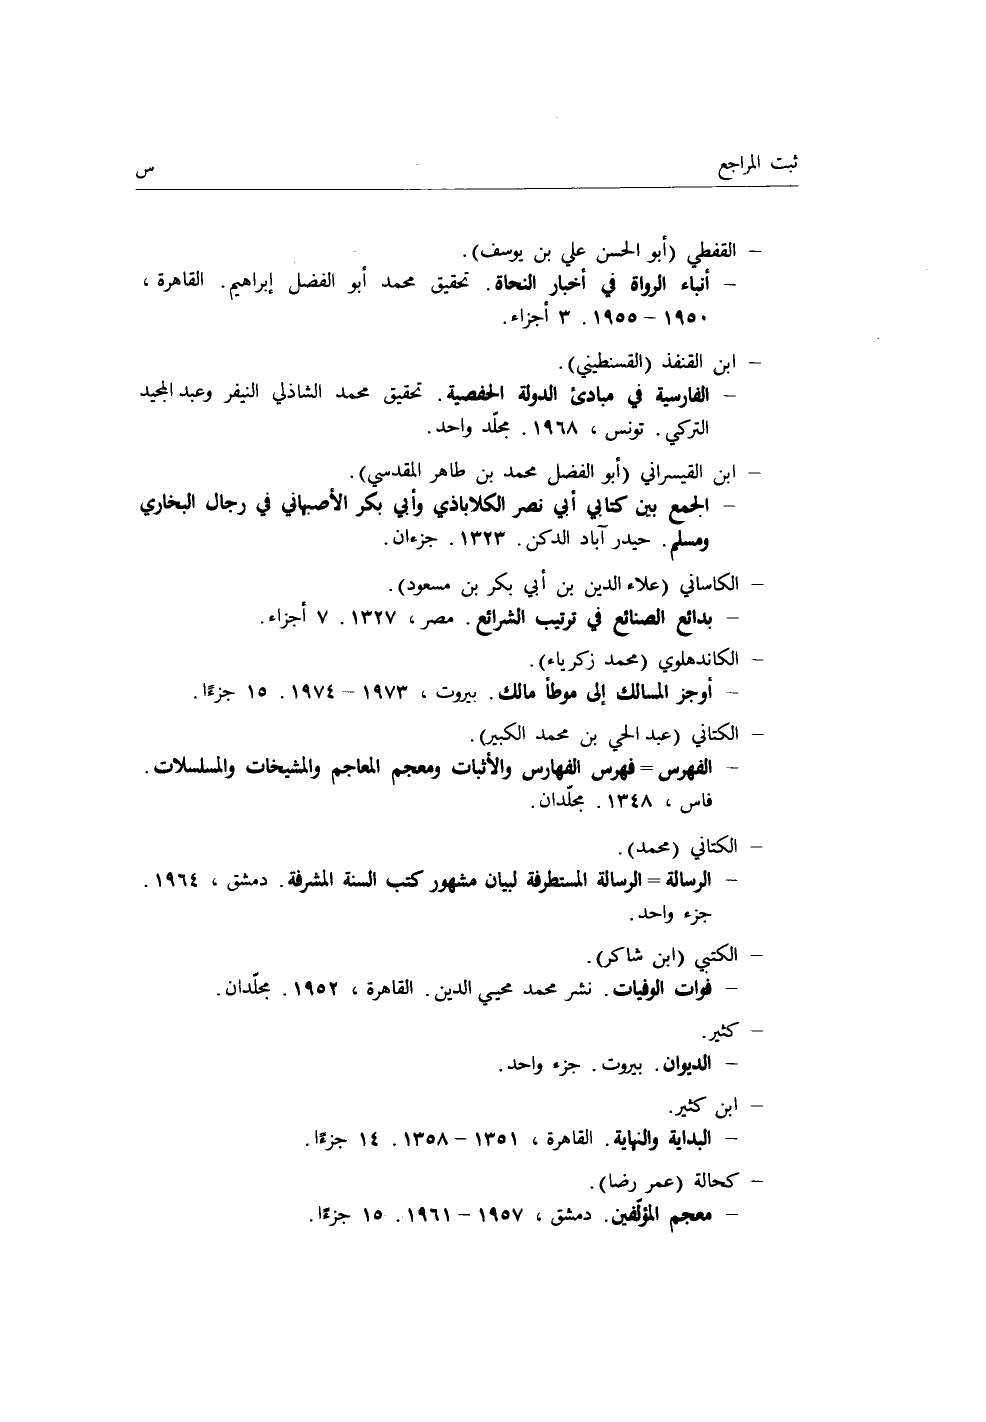 ثبت المراجع
س
– القفطي (أبو الحسن علي بن يوسف).
– أنباء الرواة في أخبار النحاة. تحقيق محمد أبو الفضل إبراهيم. القاهرة ،
١٩٥٠ – ١٩٥٥. ٣ أجزاء.
– ابن القنفذ (القسنطيني).
– الفارسية في مبادئ الدولة الحفصية. تحقيق محمد الشاذلي النيفر وعبد المجيد
التركي. تونس ، ١٩٦٨. مجلّد واحد.
– ابن القيسراني (أبو الفضل محمد بن طاهر المقدسي).
– الجمع بين كتابي أبي نصر الكلاباذي وأبي بكر الأصبهاني في رجال البخاري
ومسلم. حيدر آباد الدكن. ١٣٢٣. جزءان.
– الكاساني (علاء الدين بن أبي بكر بن مسعود).
– بدائع الصنائع في ترتيب الشرائع. مصر ، ١٣٢٧. ٧ أجزاء.
– الكاندهلوي (محمد زكرياء).
– أوجز المسالك إلى موطأ مالك. بيروت ، ١٩٧٣ – ١٩٧٤. ١٥ جزءًا.
– الكتاني (عبد الحي بن محمد الكبير).
– الفهرس = فهرس الفهارس والأثبات ومعجم المعاجم والمشيخات والمسلسلات.
فاس ، ١٣٤٨. مجلّدان.
– الكتاني (محمد).
– الرسالة = الرسالة المستطرفة لبيان مشهور كتب السنة المشرفة. دمشق ، ١٩٦٤.
جزء واحد.
– الكتبي (ابن شاكر).
– فوات الوفيات. نشر محمد محيي الدين. القاهرة ، ١٩٥٢. مجلّدان.
– كثير.
– الديوان. بيروت. جزء واحد.
– ابن كثير.
– البداية والنهاية. القاهرة ، ١٣٥١ – ١٣٥٨. ١٤ جزءًا.
– كحالة (عمر رضا).
– معجم المؤلّفين. دمشق ، ١٩٥٧ – ١٩٦١. ١٥ جزءًا.